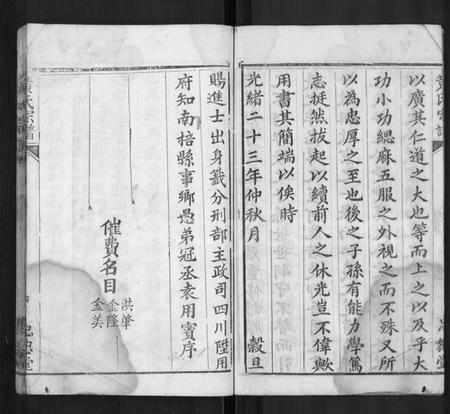 以廣其仁道之大也等而上之以及乎大
功小功緦麻五服之外視之而不殊又所
以為忠厚之至也後之子孫有能力學篤
志挺然拔起以續前人之休光豈不偉歟
用書其簡端以俟時
光緒二十三年仲秋月 穀旦
賜進士出身籤分刑部主政司四川陞用
府知南掊縣事鄉愚弟冠丞袁用賓序
催費名目
洪肇
金隆
金美
黃氏宗譜
忠恕堂